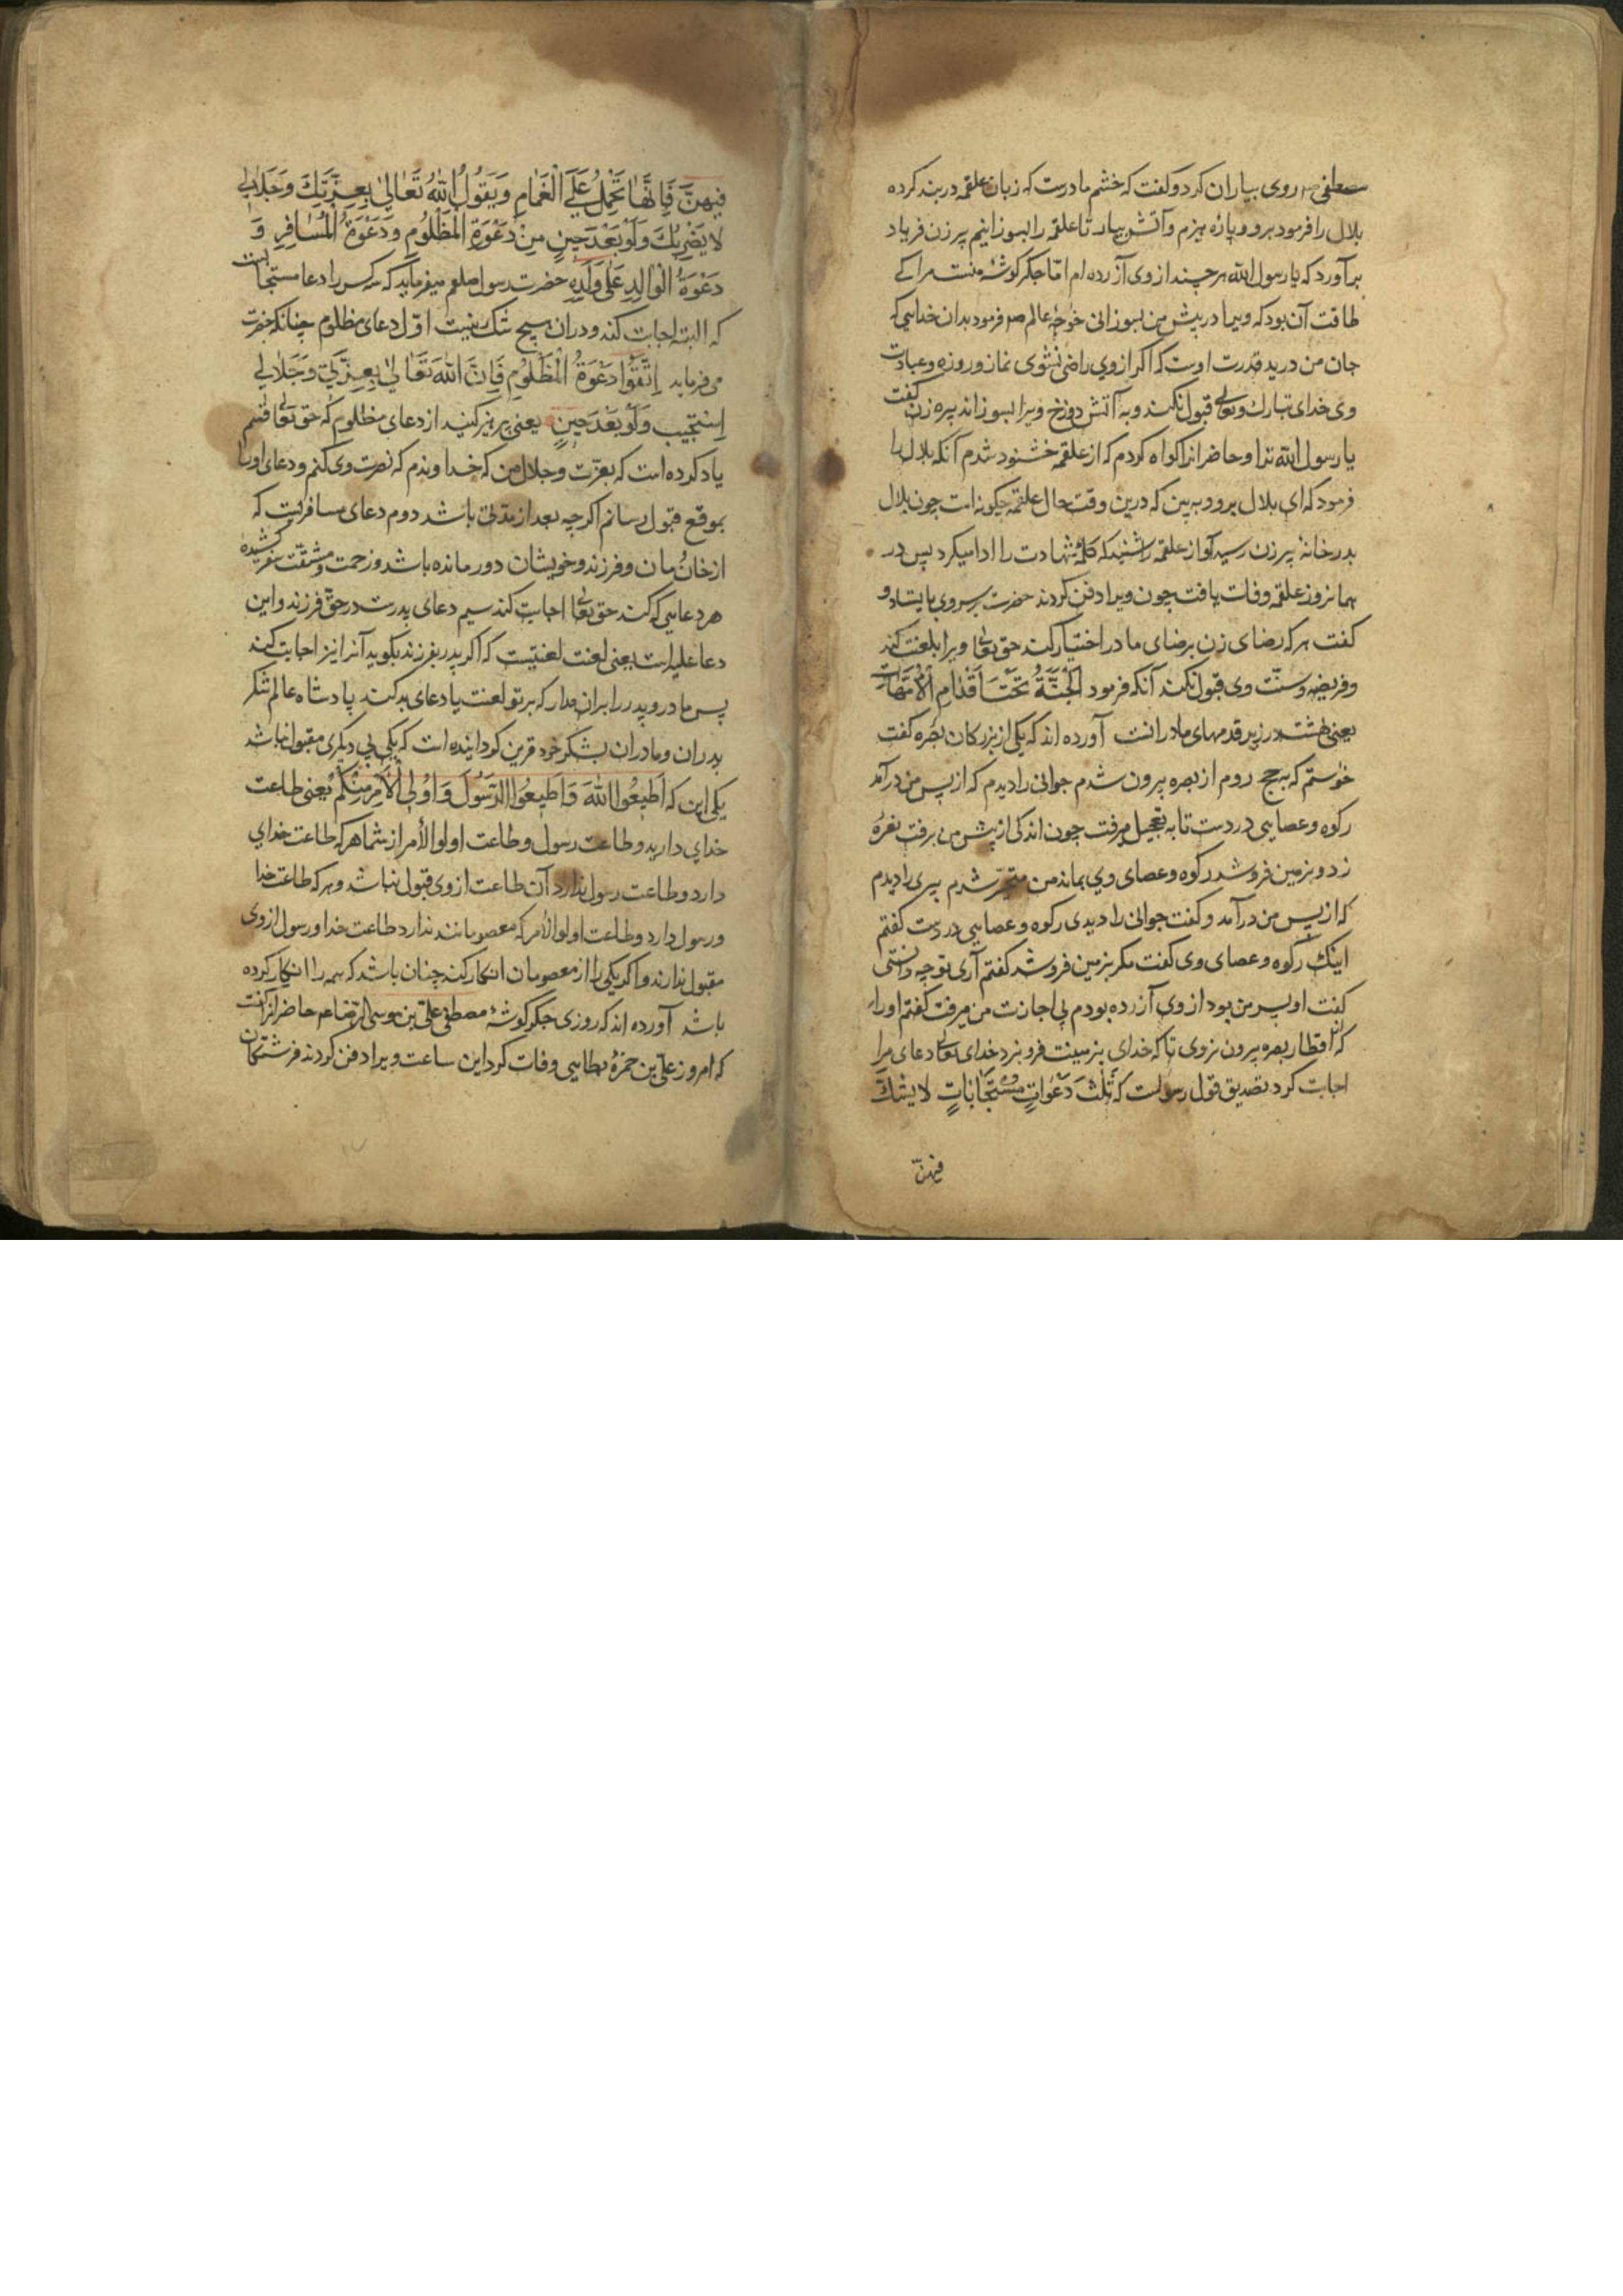 مصطفی صم روی بیاران کرد و کفت که خشم مادرست که زبان علقمه در بند کرده
بلال را فرمود برو و پارۀ هیزم و آتش بیار تا علقمه را بسوزانیم پیر زن فریاد
برآورد که یا رسول الله هر چند از وی آزرده ام امّا جکر کوشۀ منست مرا کے
طاقت آن بود که ویرا در پیش من بسوزانی خوجۀ عالم صم فرمود بدان خدایی که
جان من در ید قدرت اوست که اکر از وی راضی نشوی نماز و روزه و عبادت
وی خدای تبارک وتعالی قبول نکند و به آتش دوزخ ویرا بسوزاند پیره زن کفت
یا رسول الله ترا و حاضرانرا کواه کردم که از علقمه خشنود شدم آنکه بلال را
فرمود که ای بلال برو و به بین که درین وقت حال علقمه چکونه است چون بلال
بدر خانۀ پیر زن رسید آواز علقمه را شنید که کلمۀ شهادت را ادا میکرد پس در
همانروز علقمه وفات یافت چون ویرا دفن کردند حضرت بر سر وی بایستاد و
کفت هر که رضای زن برضای مادر اختیار کند حق تعالی ویرا بلعنت کند
و فریضه و سنّت وی قبول نکند آنکه فرمود اَلْجَنَّةُ تَحْتَ اَقْدٰامِ اْلاُمَّهٰاتِ
یعنی بهشت در زیر قدمهای مادرانست آورده اند که یکی از بزرکان بصره کفت
خواستم که به حج روم از بصره بیرون شدم جوانی را دیدم که از پس من درآمد
رکوه و عصایی در دست تا به تعجیل میرفت چون اندکی از پیش من برفت نعرۀ
زد و بزمین فرو شد رکوه و عصای وی بماند من متحیّر شدم پیری را دیدم
که از پس من درآمد و کفت جوانی را دیدی رکوه و عصایی در دست کفتم
اینک رکوه و عصای وی کفت مکر بزمین فرو شد کفتم آری تو چه دانستی
کفت او پسر من بود از وی آزرده بودم بی اجازت من میرفت کفتم او را
که از اقطار بصره بیرون نروی تا که خدای بزمینت فرو برد خدای تعالی دعای مرا
اجابت کرد تصدیق قول رسولست که ثَلٰثَ دَعَوٰاتٍ مُسْتَجٰابٰاتٍ لا یشَكَّ
فیهنّ
فیهِنَّ فَاِنَّهٰا تَحْمِلُ عَلَی الْغَمٰامِ وَیَقُولُ اللّٰهُ تَعٰالیٰ بِعِزَّتِكَ وَجَلٰالی
لا یَضُرُّكَ وَلَوْ بَعْدَ حینٍ مِنْ دَعْوَةِ الْمَظْلُومِ وَدَعْوَةُ الْمُسٰافِرِ وَ
دَعْوَةُ الْوٰالِدِ عَلیٰ وَلَدِهِ حضرت رسول صلعم میفرماید که سه کس را دعا مستجابست
که البته اجابت کند و در آن هیچ شک نیست اوّل دعای مظلوم چنانکه حضرت
می فرماید اِتَّقُوا دَعْوَةُ الْمَظْلُومِ فَاِنَّ اللّٰهَ تَعٰالیٰ بِعِزَّتی وَجَلٰالی
اِسْتَجیب وَلَوْ بَعْدَ حینٍ یعنی بپرهیز کنید از دعای مظلوم که حق تعالی قسم
یاد کرده است که بعزّت و جلال من که خداوندم که نصرت وی کنم و دعای او را
بموقع قبول رسانم اکر چه بعد از مدّتی باشد دوم دعای مسافرست که
از خان و مان و فرزند و خویشان دور مانده باشد و زحمت و مشقّت سفر کشیده
هر دعایی که کند حق تعالی اجابت کند سیم دعای پدرست در حقّ فرزند و این
دعا علیه است یعنی لعنت لعنتیست که اکر پدر بفرزند بکوید آنرا نیز اجابت کند
پس مادر و پدر را بران مدار که بر تو لعنت یا دعای بد کند پادشاه عالم شکر
پدران و مادران بشکر خود قرین کردانیده است که یکی بی دیکری مقبول نباشد
یکی این که اَطیعُوا اللّٰهَ وَاَطیعُوا الرَّسُولَ وَاُولِی اْلاَمْرِ مِنْكُمْ یعنی طاعت
خدای دارید و طاعت رسول و طاعت اولو الأمر از شما هر که طاعت خدای
دارد و طاعت رسول ندارد آن طاعت از وی قبول نباشد و هر که طاعت خدا
و رسول دارد و طاعت اولو الأمر که معصومانند ندارد طاعت خدا و رسول از وی
مقبول ندارند و اکر یکی را از معصومان انکار کند چنان باشد که همه را انکار کرده
باشد آورده اند که روزی جکر کوشۀ مصطفی علیّ بن موسی الرّضا عم حاضرانرا کفت
که امروز علیّ بن حمزۀ بطایی وفات کرد این ساعت ویرا دفن کردند فرشتکان